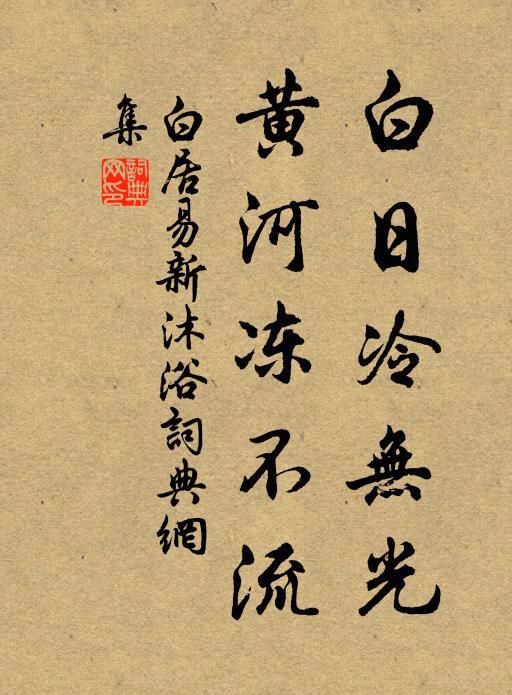 白日冷無光
黄河冻不流
白居易新沐浴詞典網
集
詞典
网印